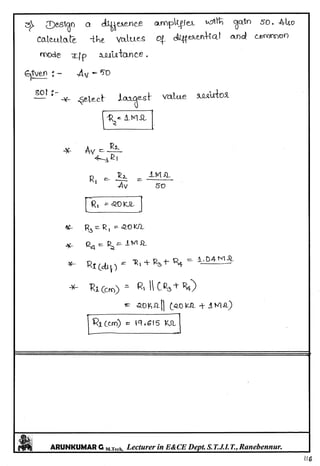 3) Design a difference amplifier with gain 50. Also
Calculate the values of differential and common
mode I/p resistance.
Given :- Av = 50
Sol :-
* Select largest value resistor
R2 = 1MΩ
* Av = R2 / R1
R1 = R2 / Av = 1MΩ / 50
R1 = 20KΩ
* R3 = R1 = 20KΩ
* R4 = R2 = 1MΩ
* RI(dif) = R1 + R3 + R4 = 1.04MΩ
* RI(cm) = R1 || (R3 + R4)
= 20KΩ || (20KΩ + 1MΩ)
RI(cm) = 19.615 KΩ
ARUNKUMAR G M.Tech, Lecturer in E&CE Dept. S.T.J.I.T., Ranebennur.